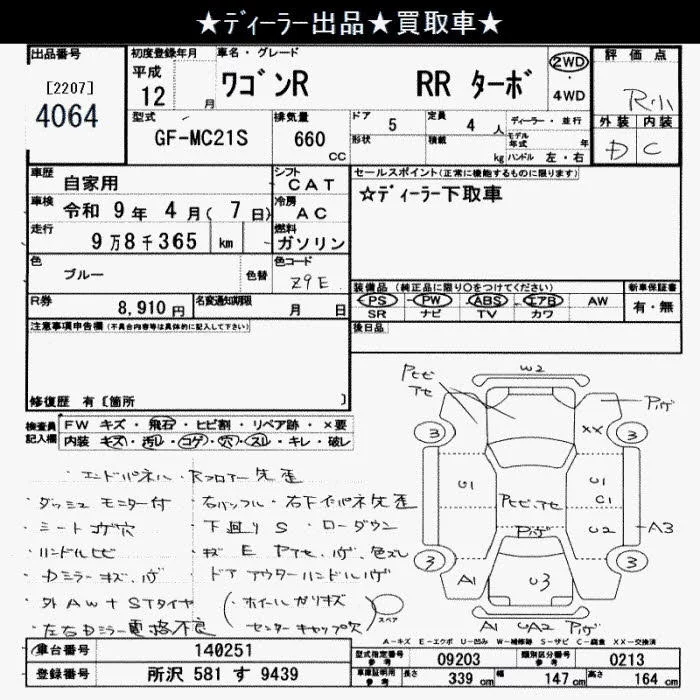 ★ディーラー出品★買取車★
出品番号
[2207]
4064
初度登録年月
平成
12 月
車名・グレード
ワゴンR RR ターボ
2WD
・
4WD
評価点
R小
外装 内装
D C
型式
GF-MC21S
排気量
660
CC
ドア
5
定員
4 人
形状
積載
kg
ディーラー・並行
モデル
年式 年
ハンドル 左・右
車歴
自家用
シフト
CAT
車検
令和 9年 4月( 7日)
冷房
AC
走行
9万8千365 km
燃料
ガソリン
色
ブルー
色替
色コード
Z9E
R券
8,910円
名変通知期限
月 日
セールスポイント(正常に機能するものに限ります)
☆ディーラー下取車
装備品 (純正品に限り○をつけてください)
PS ・ PW ・ ABS ・ エアB ・ AW
SR ナビ TV カワ
新車保証書
有・無
後日品
注意事項申告欄(不具合内容等は具体的に記入して下さい)
修復歴 有〔箇所 〕
検査員
記入欄
FW キズ・飛石・ヒビ割・リペア跡・×要
内装 キズ・汚レ・コゲ・穴・スレ・キレ・破レ
・エンドパネル・Rフロアー先歪
・ダッシュモニター付 ・右バッフル・右下インパネ先歪
・シートコゲ穴 ・下廻りS ・ローダウン
・ハンドルヒビ ・キズ E Pアセ、ハゲ、色ズレ
・Dミラーキズ、ハゲ ・ドアアウターハンドルハゲ
・外AW+STタイヤ (・ホイールガリキズ
・左右Dミラー電格不良 センターキャップ欠)
W2
Pヒビ
アセ
Pハゲ
3
XX
3
U1
Pヒビ、アセ
U1
C1
Pハゲ
U2
A3
3
A1
U3
3
スペア
A1 UA2 Pハゲ
A-キズ E-エクボ U-凹み W-補修跡 S-サビ C-腐食 XX-交換済
車台番号
140251
登録番号
所沢 581 す 9439
型式指定番号
参考
09203
類別区分番号
参考
0213
車庫証明用
参考
長さ
339 cm
幅
147 cm
高さ
164 cm